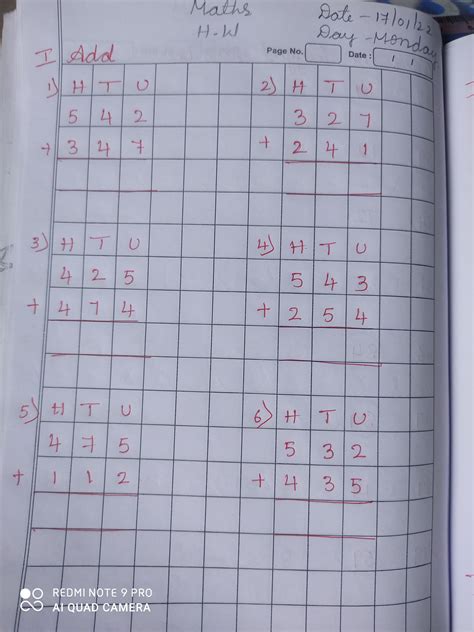 Maths
Date - 17/01/22
H.W
Day - Monday
Page No.
Date :
I Add
1) H T U
5 4 2
+ 3 4 7
2) H T U
3 2 7
+ 2 4 1
3) H T U
4 2 5
+ 4 7 4
4) H T U
5 4 3
+ 2 5 4
5) H T U
4 7 5
+ 1 1 2
6) H T U
5 3 2
+ 4 3 5
REDMI NOTE 9 PRO
AI QUAD CAMERA